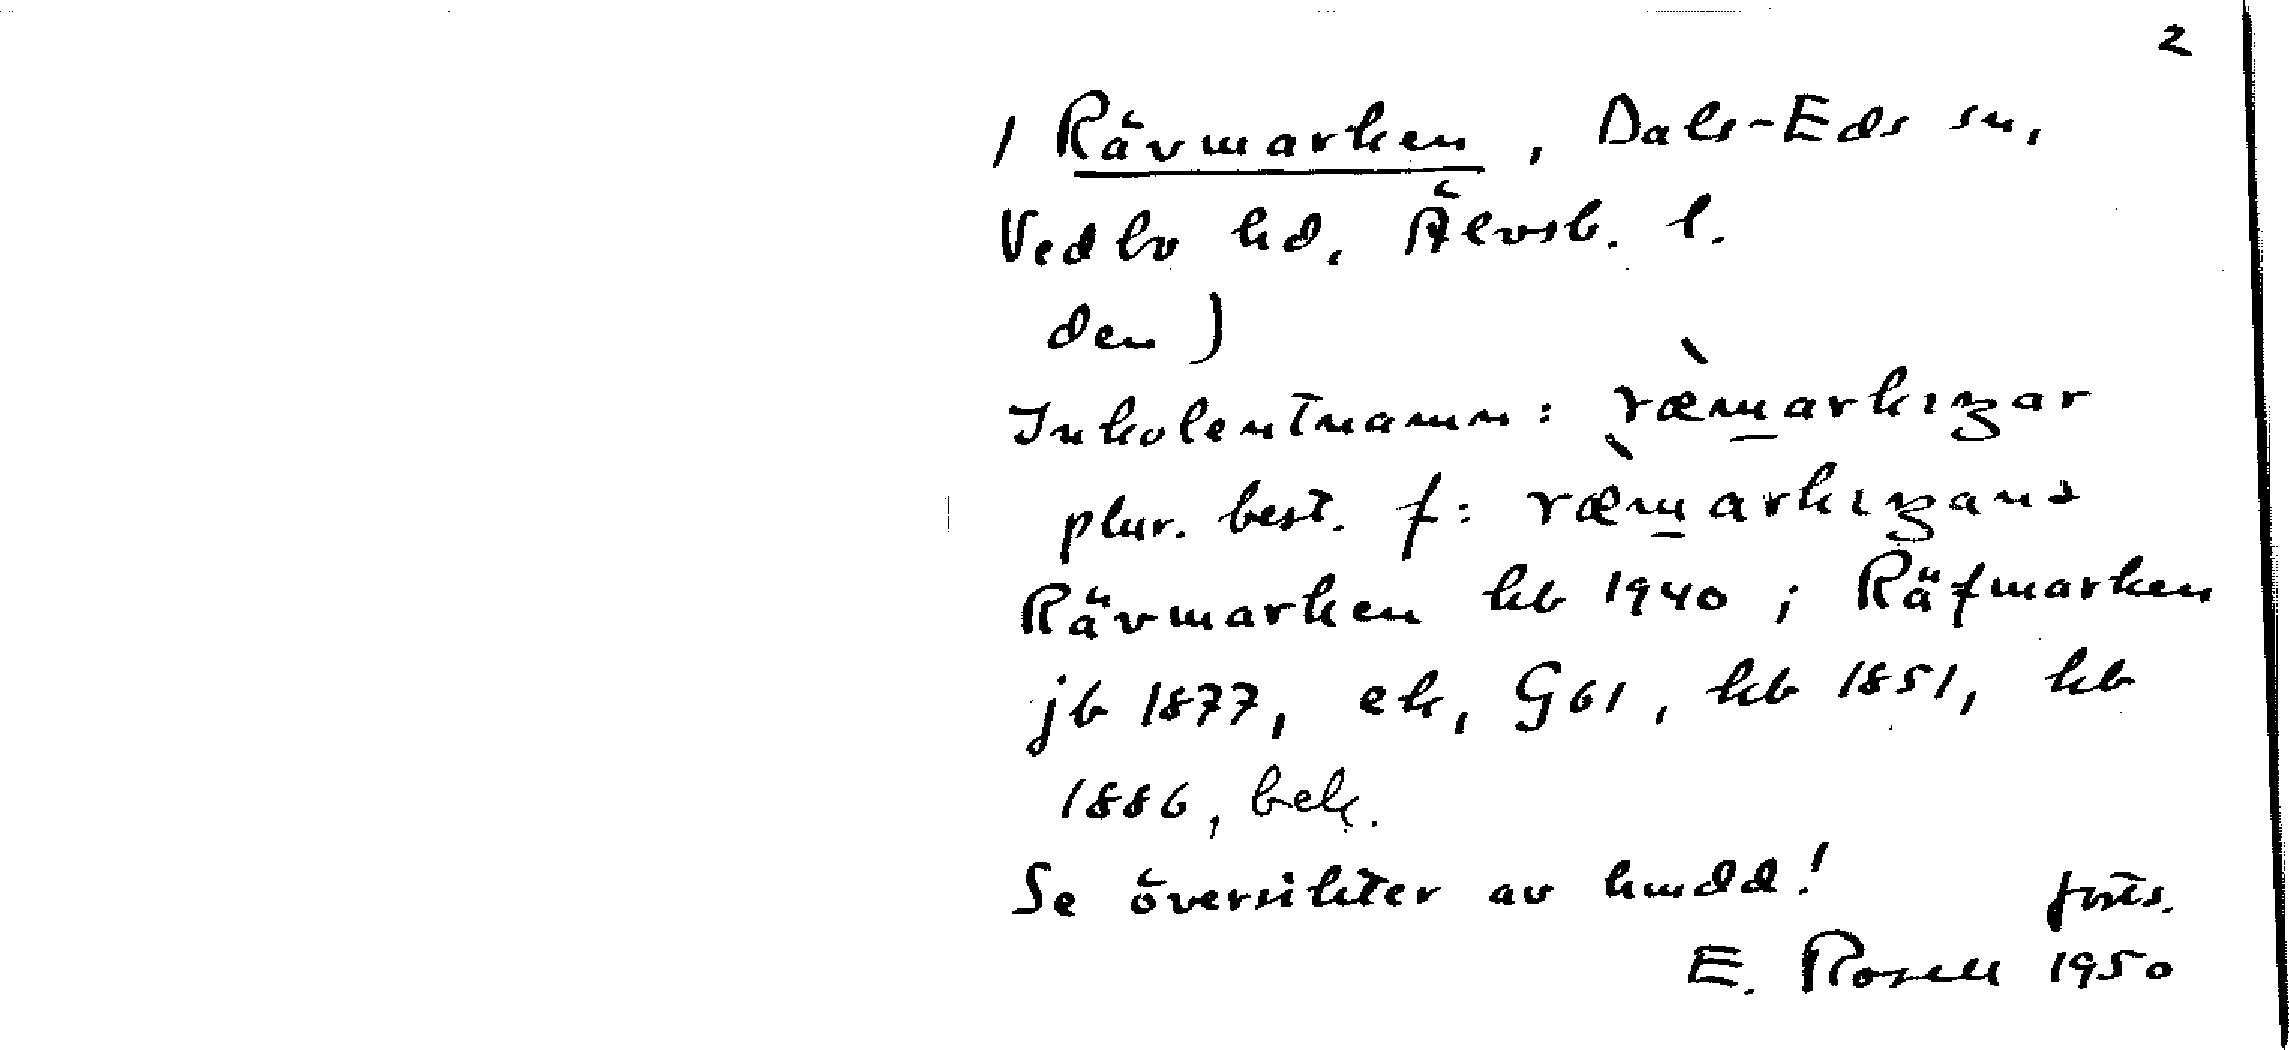 2
1 Rävmarken, Dals-Eds sn,
Vedbo hd, Älvsb. l.
den)
Inkolentnamn: ræ̀m̲arkıŋar
plur. best. f: ræ̀m̲arkıŋana
Rävmarken kb 1940; Räfmarken
jb 1877, ek, G61, kb 1851, kb
1886, bek.
Se översikter av hmdd!
forts.
E. Rosell 1950